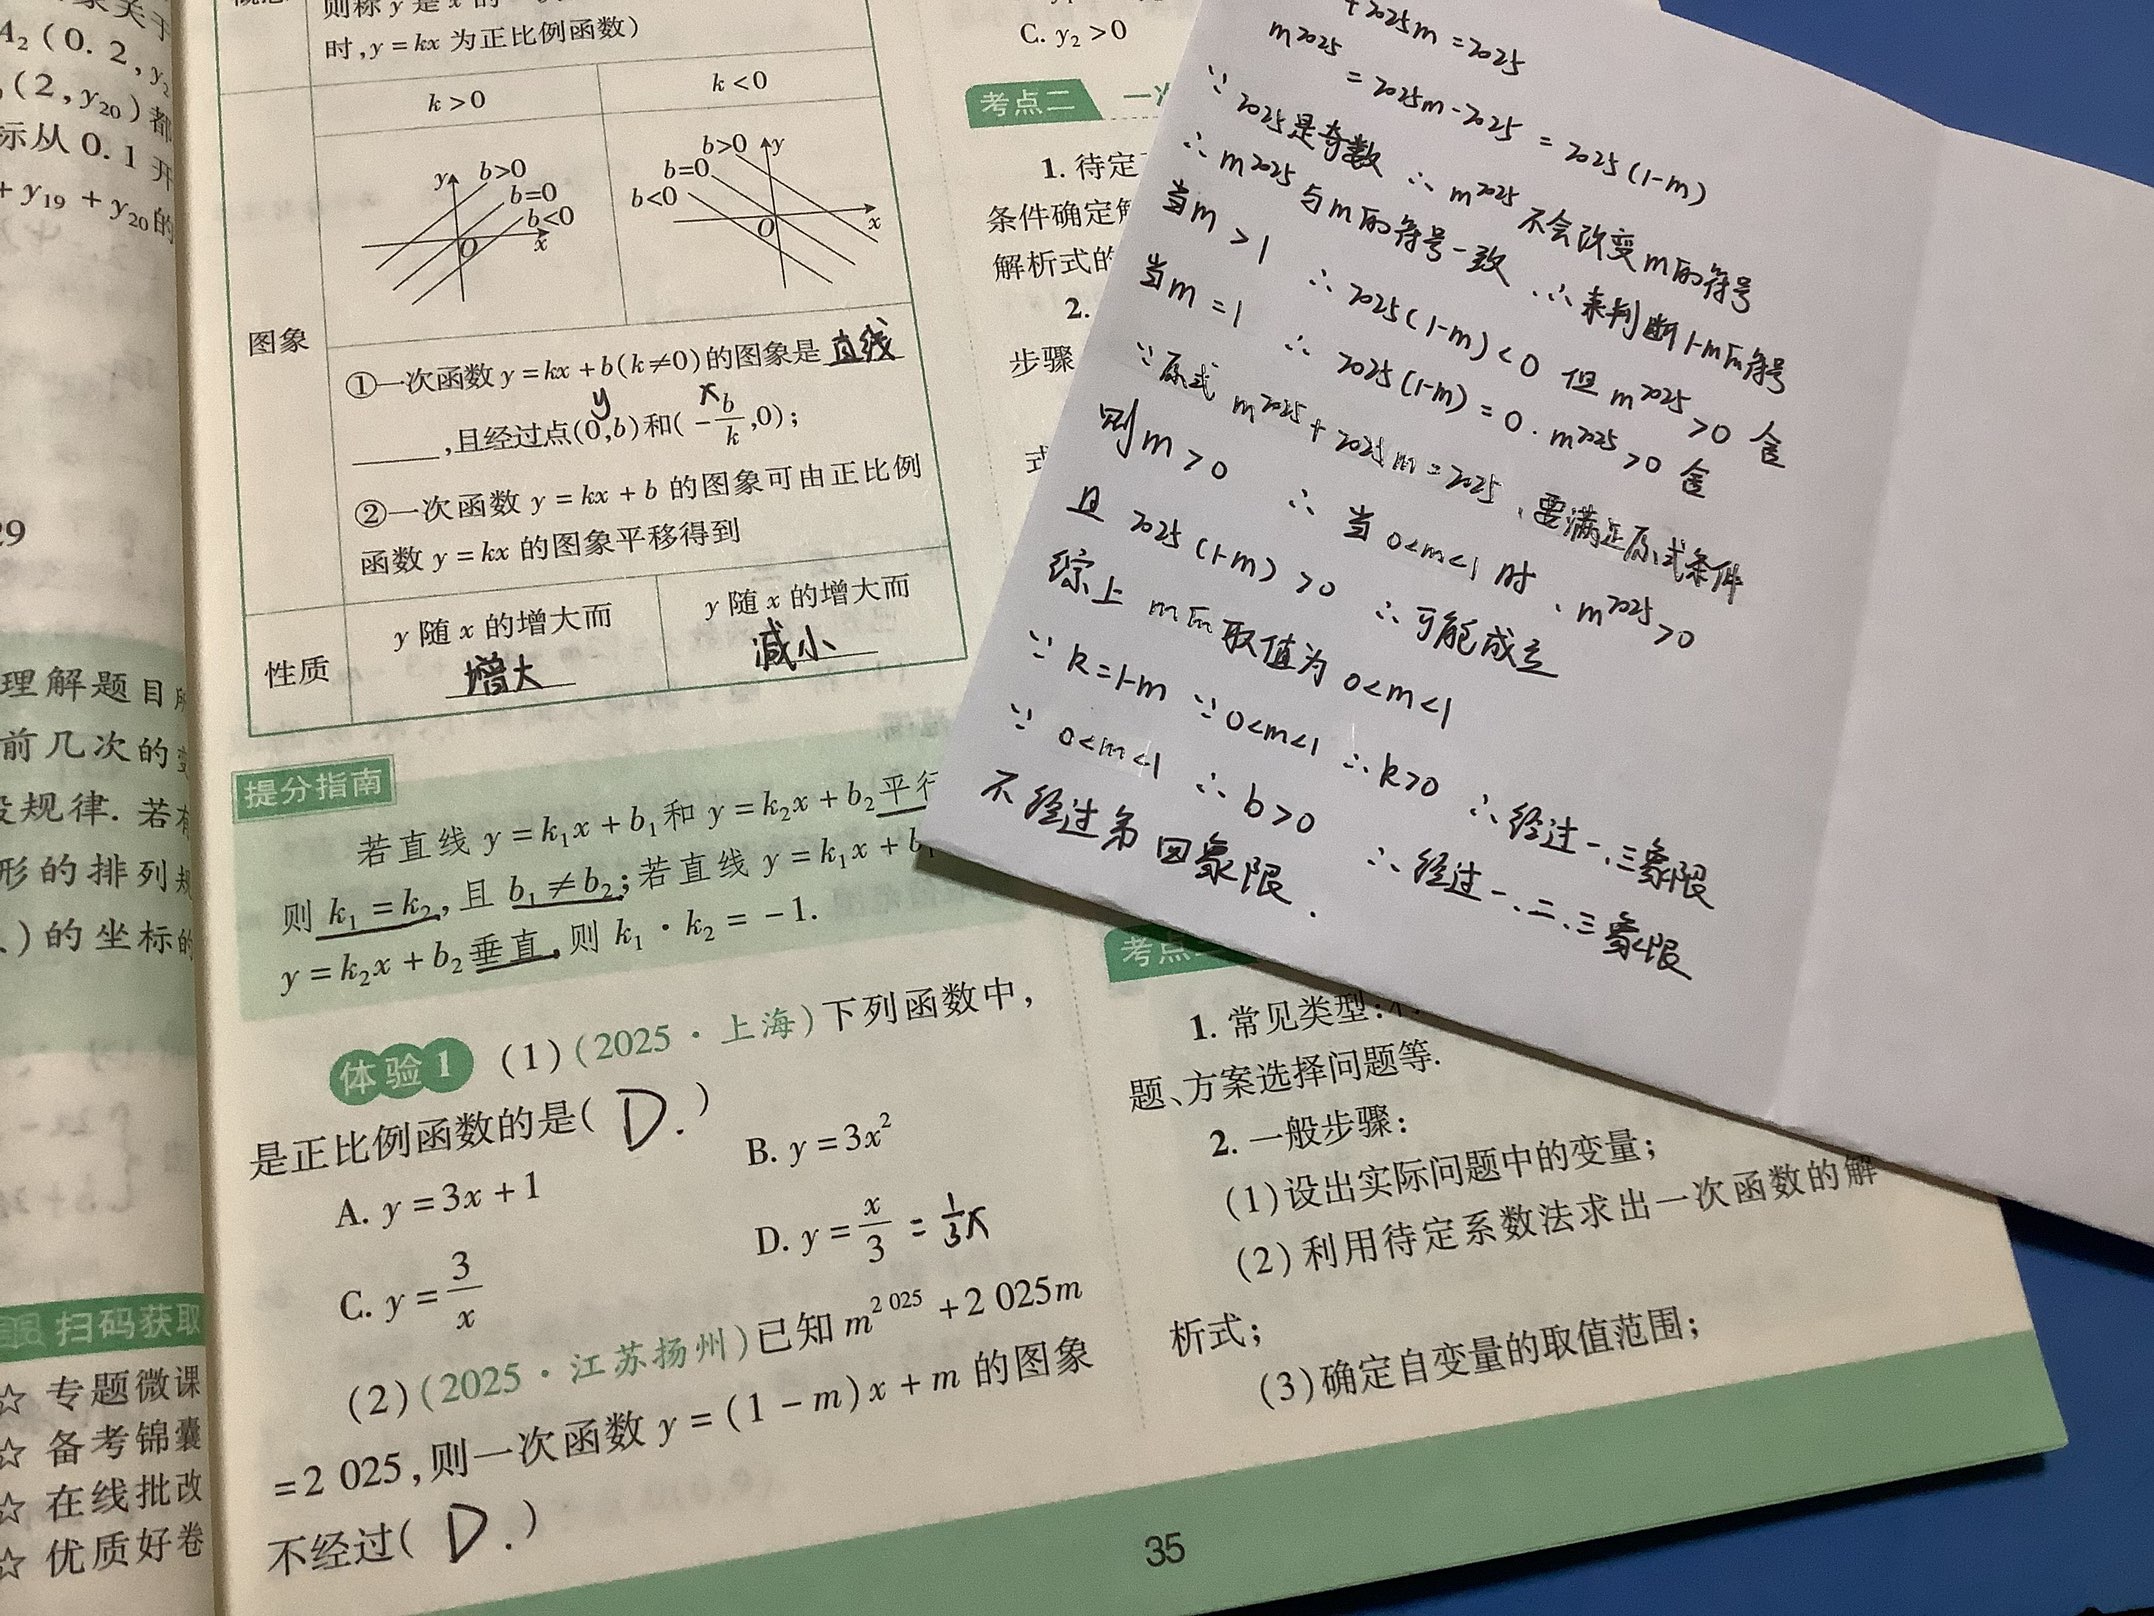 A₂(0.2,y₂
(2,y₂₀)都
标从 0.1 开
+y₁₉+y₂₀的
29
理解题目所
前几次的变
规律.若有
形的排列规
)的坐标的
扫码获取
☆ 专题微课
☆ 备考锦囊
☆ 在线批改
☆ 优质好卷
时,y=kx 为正比例函数)
k>0
k<0
图象
y b>0
b=0
b<0
O x
b>0 y
b=0
b<0
O x
①一次函数 y=kx+b(k≠0)的图象是 直线
y x
,且经过点(0,b)和(-b/k,0);
②一次函数 y=kx+b 的图象可由正比例
函数 y=kx 的图象平移得到
性质
y 随 x 的增大而
增大
y 随 x 的增大而
减小
提分指南
若直线 y=k₁x+b₁和 y=k₂x+b₂平行
则 k₁=k₂,且 b₁≠b₂;若直线 y=k₁x+b₁
y=k₂x+b₂垂直,则 k₁·k₂=-1.
体验1 (1)(2025·上海)下列函数中,
是正比例函数的是( D. )
A. y=3x+1
B. y=3x²
C. y=3/x
D. y=x/3 =1/3x
(2)(2025·江苏扬州)已知 m^2 025+2 025m
=2 025,则一次函数 y=(1-m)x+m 的图象
不经过( D. )
C. y₂>0
考点二
1. 待定
条件确定解
解析式的
2.
步骤
式
+2025m=2025
m^2025=2025m-2025=2025(1-m)
∵2025是奇数 ∴m^2025不会改变m的符号
∴m^2025与m的符号一致 ∴来判断1-m的符号
当m>1 ∴2025(1-m)<0 但m^2025>0 舍
当m=1 ∴2025(1-m)=0. m^2025>0 舍
∵原式m^2025+2025m=2025、要满足原式条件
则m>0 ∴当0<m<1时、m^2025>0
且2025(1-m)>0 ∴可能成立
综上m的取值为0<m<1
∵k=1-m ∵0<m<1 ∴k>0 ∴经过一、三象限
∵0<m<1 ∴b>0 ∴经过一、二、三象限
不经过第四象限.
考点
1. 常见类型:
题、方案选择问题等.
2. 一般步骤:
(1)设出实际问题中的变量;
(2)利用待定系数法求出一次函数的解
析式;
(3)确定自变量的取值范围;
35